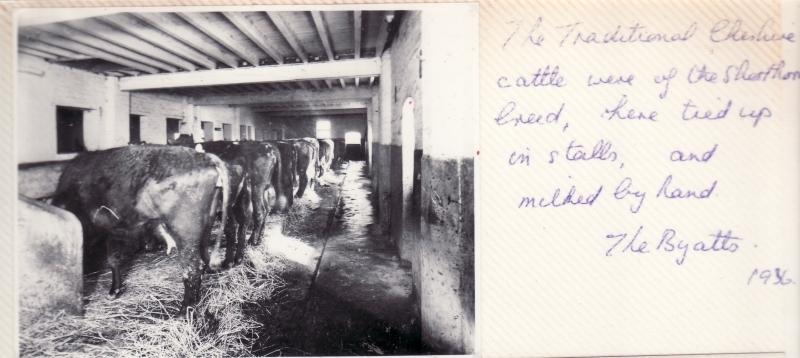 The Traditional Cheshire
cattle were of the Shorthorn
breed, here tied up
in stalls, and
milked by hand.
The Byatts.
1936.